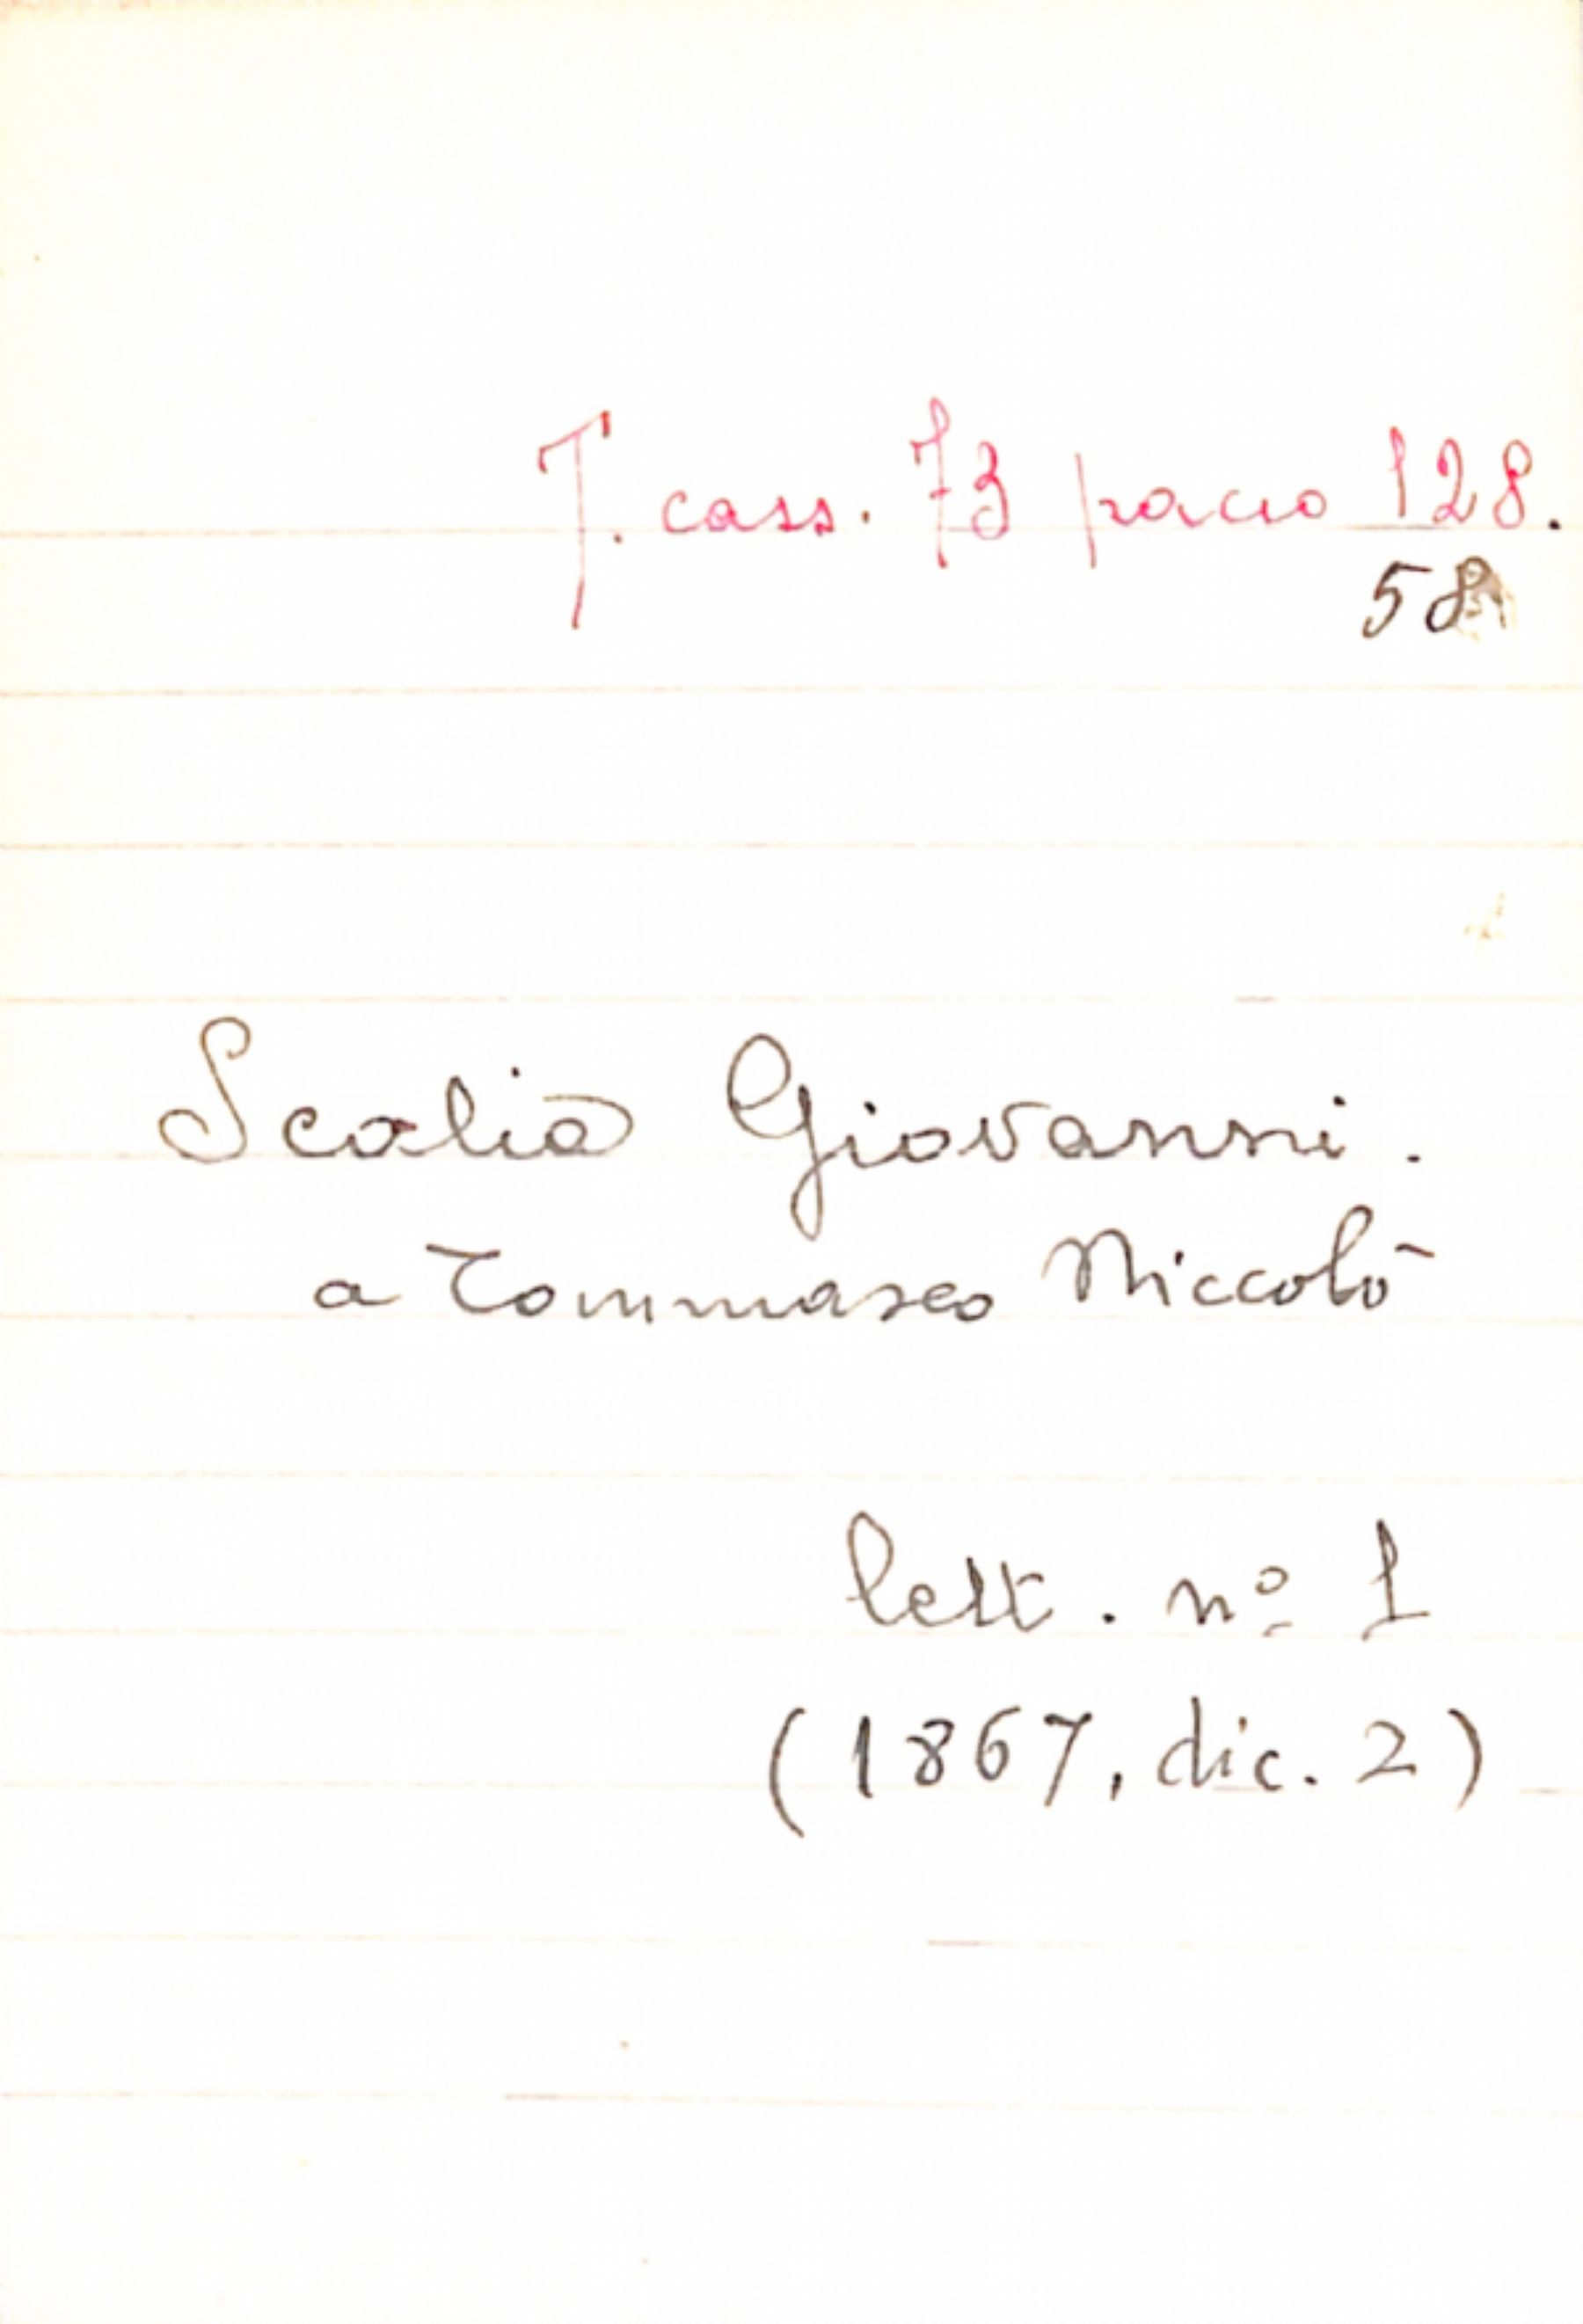 T. cass. 73 pacco 128.
58
Scalia Giovanni.
a Tommaseo Niccolò
lett. nº 1
(1867, dic. 2)